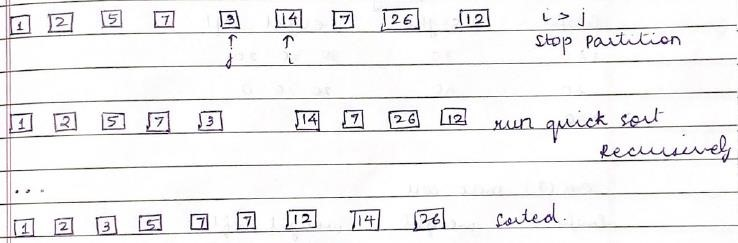 1 2 5 7 3 14 7 26 12 i > j
↑ ↑ Stop Partition
j i
1 2 5 7 3 14 7 26 12 run quick sort
Recursively
...
1 2 3 5 7 7 12 14 26 Sorted.